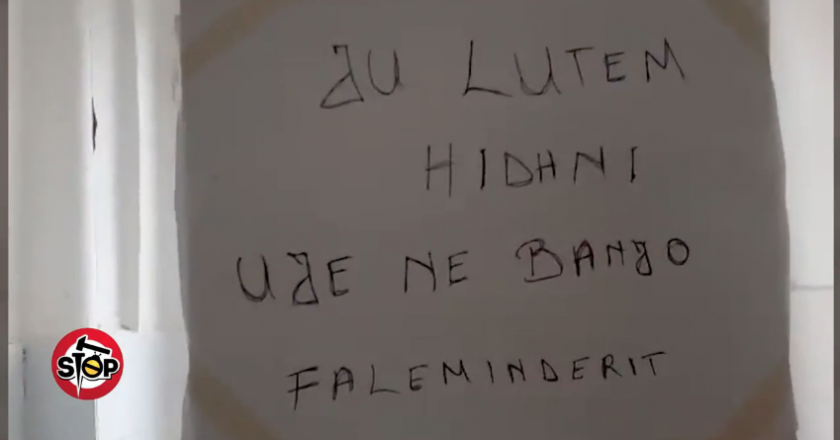 JU LUTEM
HIDHNI
UJE NE BANJO
FALEMINDERIT
STOP